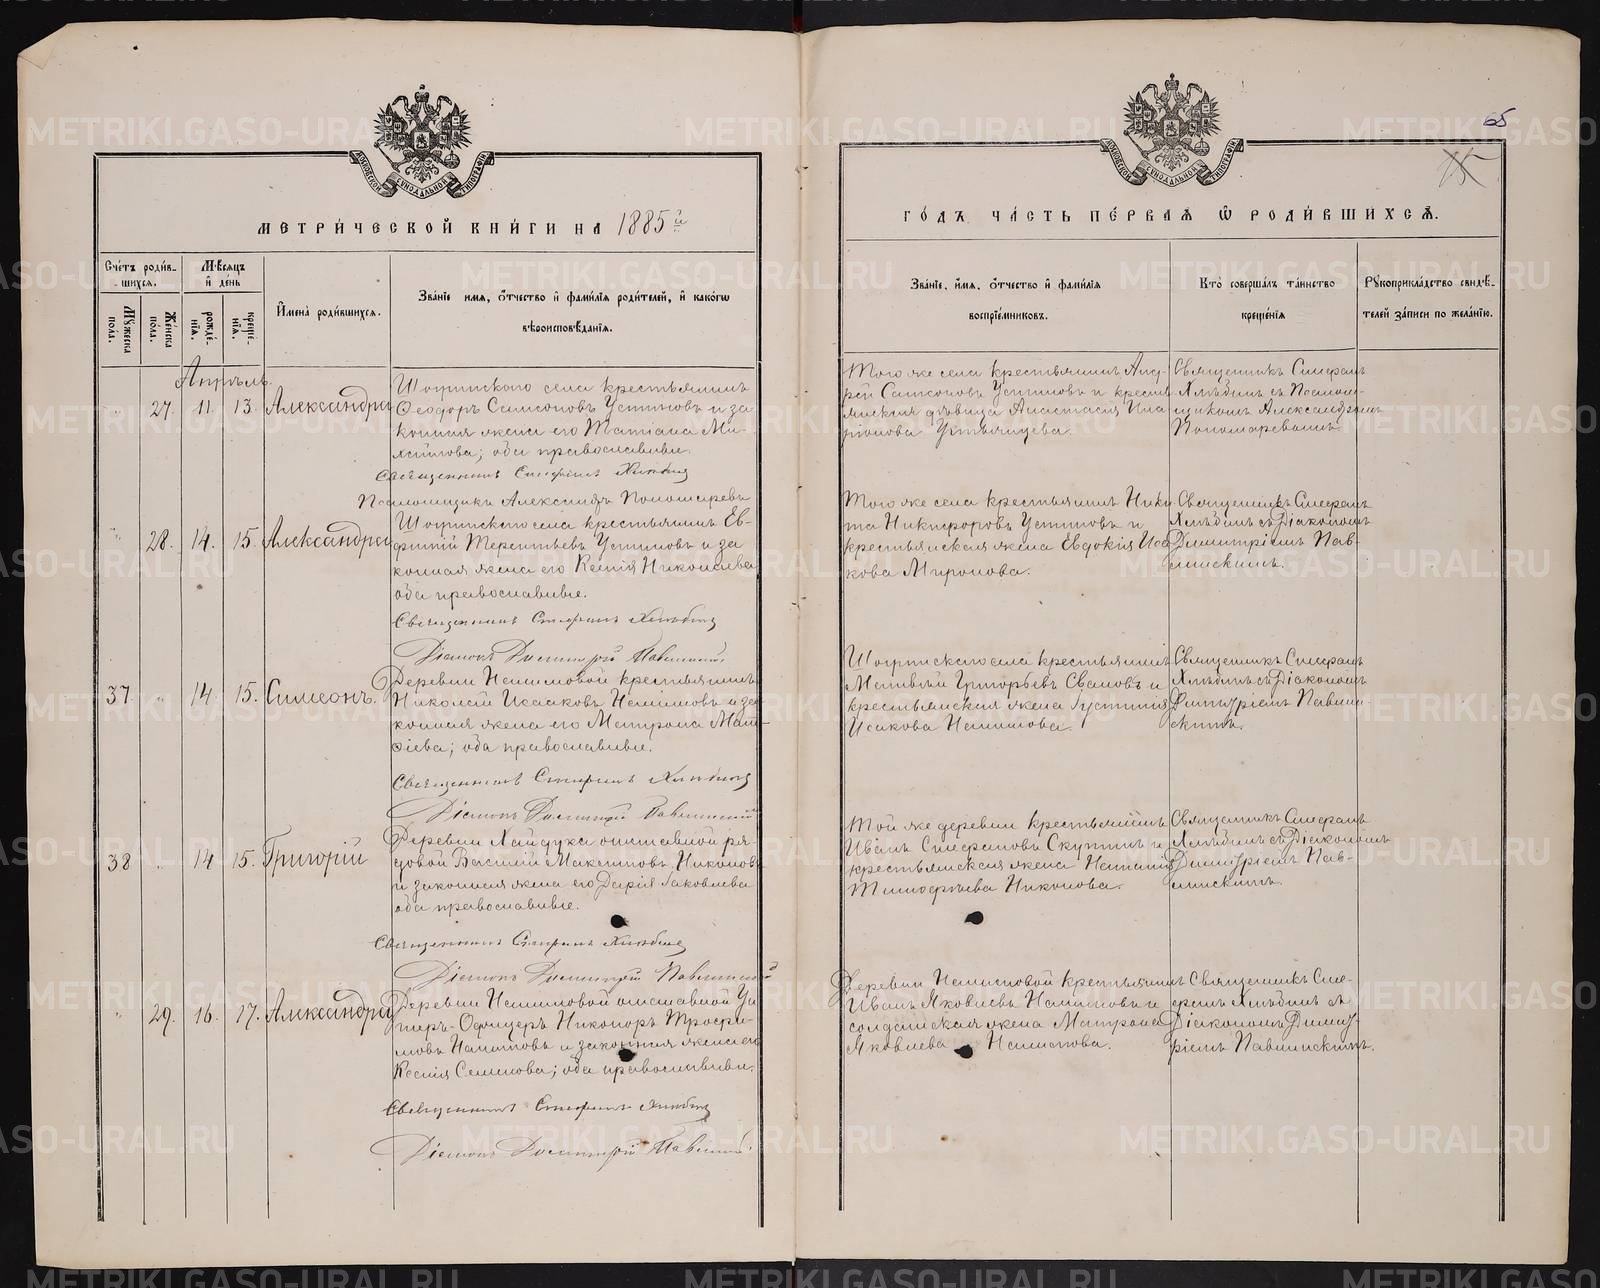 65
15
МЕТРИ́ЧЕСКОЙ КНИ́ГИ НА 1885й
ГО́ДЪ ЧА́СТЬ ПЕ́РВАЯ Ѡ РОДИ́ВШИХСЯ.
Сче́тъ роди́в-
шихся.
Мѣсяцъ
и́ де́нь
Му́жеска пола.
Же́нска пола.
рожде́-нїя.
креще́-нїя.
И́мена̀ роди́вшихся.
Зва́нїе имя, ѻ́тчество и́ фами́лїя роди́телей, и́ како́гѡ
вѣроисповѣ́данїя.
Зва́нїе, и́мя, ѻ́тчество и́ фами́лїя
воспрїе́мниковъ.
Кто̀ соверша́лъ та́инство
креще́нїя
Рꙋкоприкла́дство свидѣ́-
телей за́писи по жела́нїю.
Апрѣль.
27. 11. 13. Александра
села крестьянинъ
Ѳеодоръ Самсоновъ Устиновъ и за
конная жена его Татіана Ми-
хайлова; оба православные.
Священникъ Стефанъ Хлѣбинъ
Псаломщикъ Александръ Пономаревъ
Того же села крестьянинъ Анд-
рей Самсоновъ Устиновъ и кресть
янская дѣвица Анастасія Ила
ріонова
Священникъ Стефанъ
Хлѣбинъ съ Псалом-
щикомъ Александромъ
Пономаревымъ.
28. 14. 15. Александра
села крестьянинъ Ев-
Терентьевъ Устиновъ и за
конная жена его Ксенія Николаева
оба православные.
Священникъ Стефанъ Хлѣбинъ
Діаконъ Димитрій Павлинскій
Того же села крестьянинъ Ники
та Никифоровъ Устиновъ и
крестьянская жена Евдокія Исаа
кова Миронова.
Священникъ Стефанъ
Хлѣбинъ съ Діакономъ
Димитріемъ Пав-
линскимъ.
37 14 15. Симеонъ.
Деревни крестьянинъ
Николай Исааковъ и за
конная жена его Матрона Мат-
ѳіева; оба православные.
Священникъ Стефанъ Хлѣбинъ
Діаконъ Димитрій Павлинскій
села крестьянинъ
Матвѣй и
крестьянская жена Іустинія
Исакова
Священникъ Стефанъ
Хлѣбинъ съ Діакономъ
Димитріемъ Павлин-
скимъ.
38 14 15. Григорій
Деревни отставной ря-
довой Василій Максимовъ Никоновъ
и законная жена его Дарія Іаковлева
оба православные.
Священникъ Стефанъ Хлѣбинъ
Діаконъ Димитрій Павлинскій
Той же деревни крестьянинъ
Иванъ Стефановъ и
крестьянская жена Наталія
Тимофѣева Никонова.
Священникъ Стефанъ
Хлѣбинъ съ Діакономъ
Димитріемъ Пав-
линскимъ.
29. 16. 17. Александра
Деревни отставной Ун
теръ-Офицеръ Никаноръ Трофи-
мовъ и законная жена его
Ксенія Семенова; оба православные.
Священникъ Стефанъ Хлѣбинъ
Діаконъ Димитрій Павлинскій
Деревни крестьянинъ
Иванъ Яковлевъ и
солдатская жена Матрона
Яковлева
Священникъ Сте-
фанъ Хлѣбинъ съ
Діакономъ Димит-
ріемъ Павлинскимъ.
METRIKI.GASO-URAL.RU